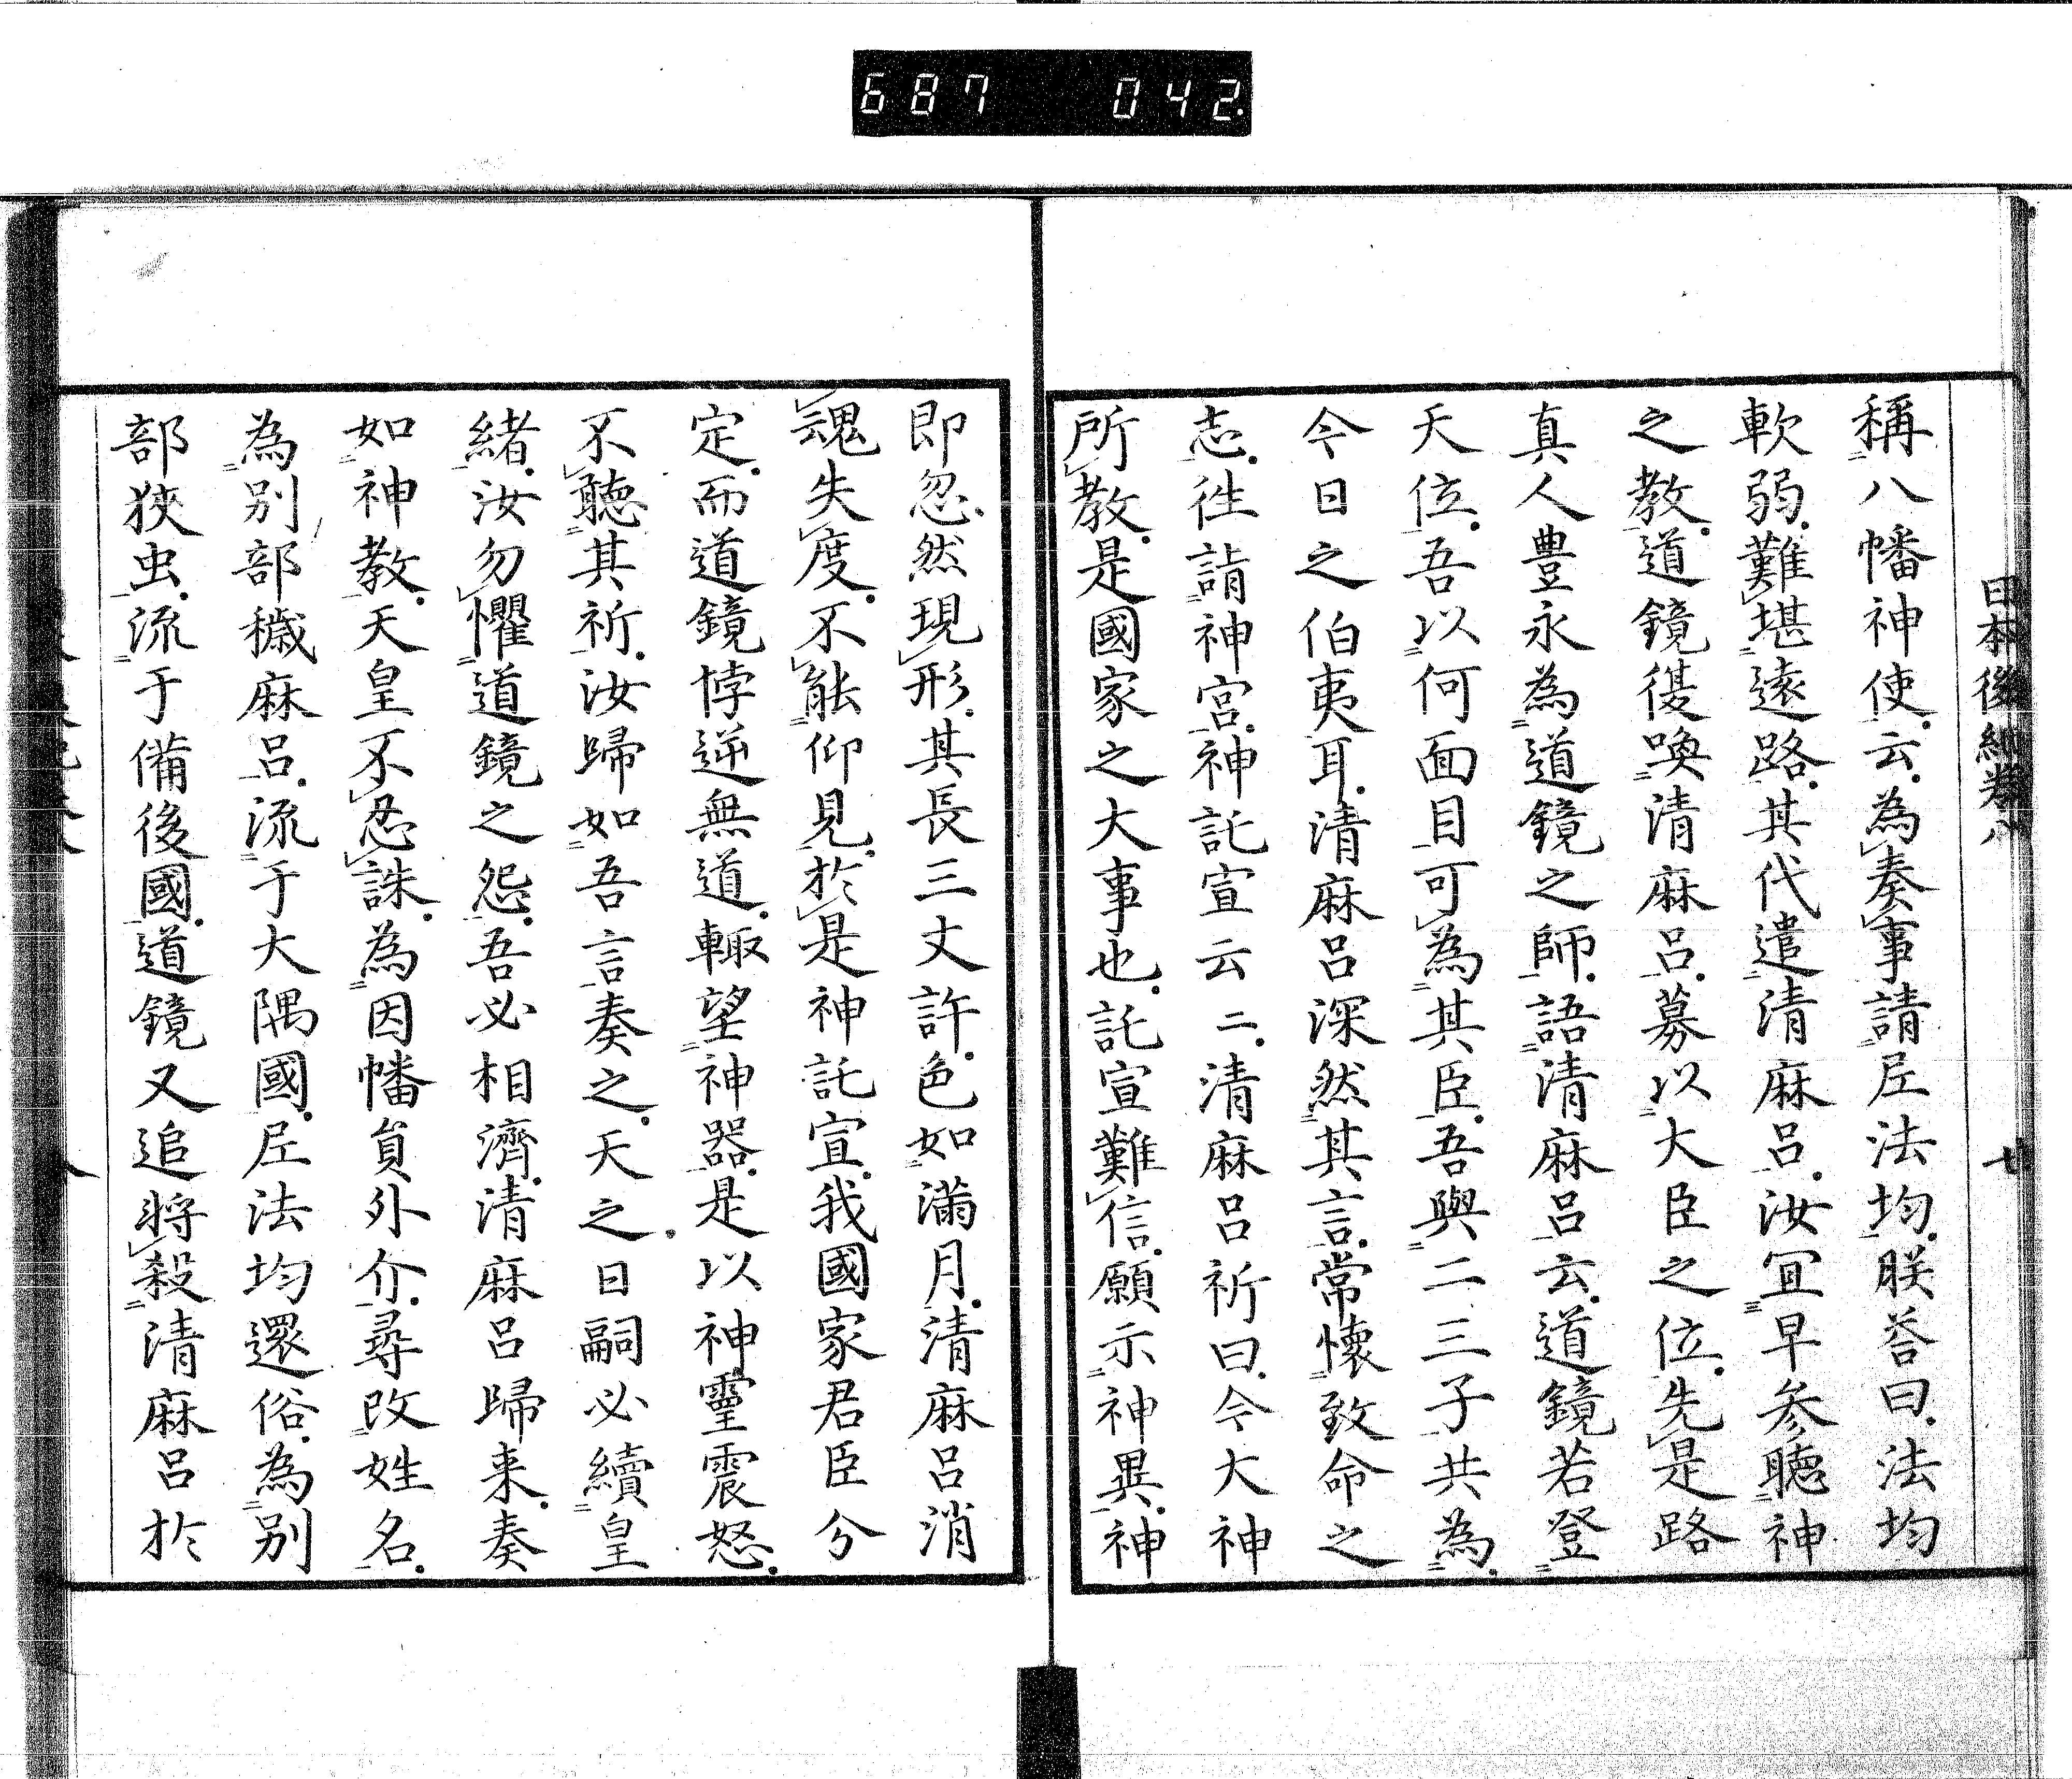 687 042.
日本後紀卷八 廿
稱八幡神使云為奏事請尼法均朕荅曰法均
軟弱難堪遠路其代遣清麻呂汝宜早参聴神
之教道鏡復喚清麻呂募以大臣之位先是路
真人豊永為道鏡之師語清麻呂云道鏡若登
天位吾以何面目可為其臣吾與二三子共為
今日之伯夷耳清麻呂深然其言常懷致命之
志徃詣神宮神託宣云二清麻呂祈曰今大神
所教是國家之大事也託宣難信願示神異神
即忽然現形其長三丈許色如滿月清麻呂消
魂失度不能仰見於是神託宣我國家君臣分
定而道鏡悖逆無道輙望神器是以神靈震怒
不聴其祈汝歸如吾言奏之天之日嗣必續皇
緒汝勿懼道鏡之怨吾必相濟清麻呂歸来奏
如神教天皇不忍誅為因幡員外介尋改姓名
為別部穢麻呂流于大隅國尼法均還俗為別
部狹虫流于備後國道鏡又追将殺清麻呂於